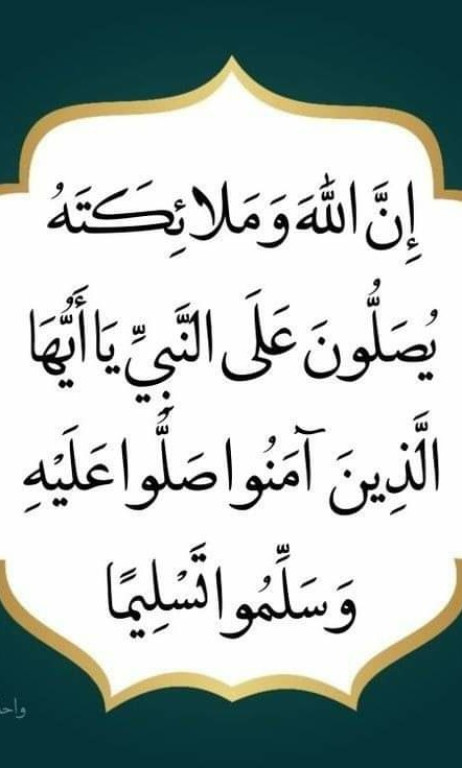 إِنَّ اللَّهَ وَمَلَائِكَتَهُ
يُصَلُّونَ عَلَى النَّبِيِّ يَا أَيُّهَا
الَّذِينَ آمَنُوا صَلُّوا عَلَيْهِ
وَسَلِّمُوا تَسْلِيمًا